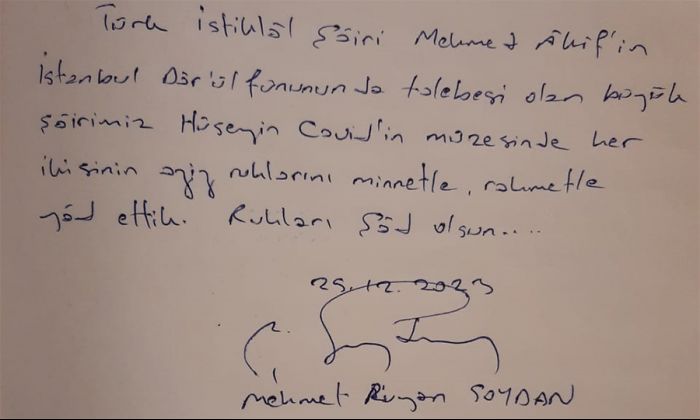 Türk İstiklâl Şâiri Mehmet Âkif'in
İstanbul Dâr'ül fünununda talebesi olan büyük
şâirimiz Hüseyin Cavid'in müzesinde her
ikisinin aziz ruhlarını minnetle, rahmetle
yâd ettik. Ruhları Şâd olsun....
25.12.2023
Mehmet Rıyan SOYDAN